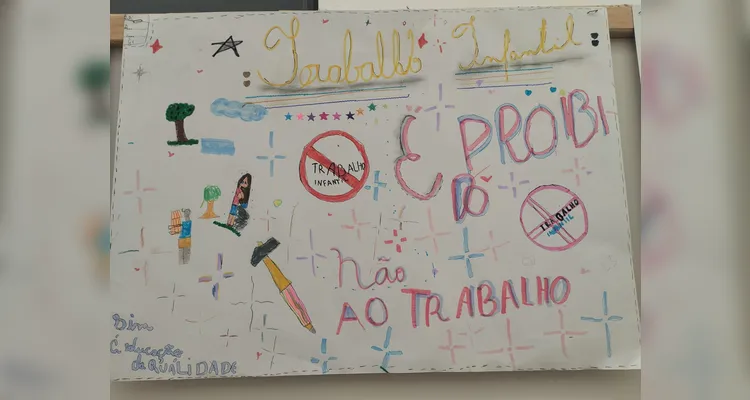 Trabalho Infantil
TRABALHO
INFANTIL
É PROIBI
DO
TRABALHO
INFANTIL
Não
AO TRABALHO
Sim
É educação
de QUALIDADE